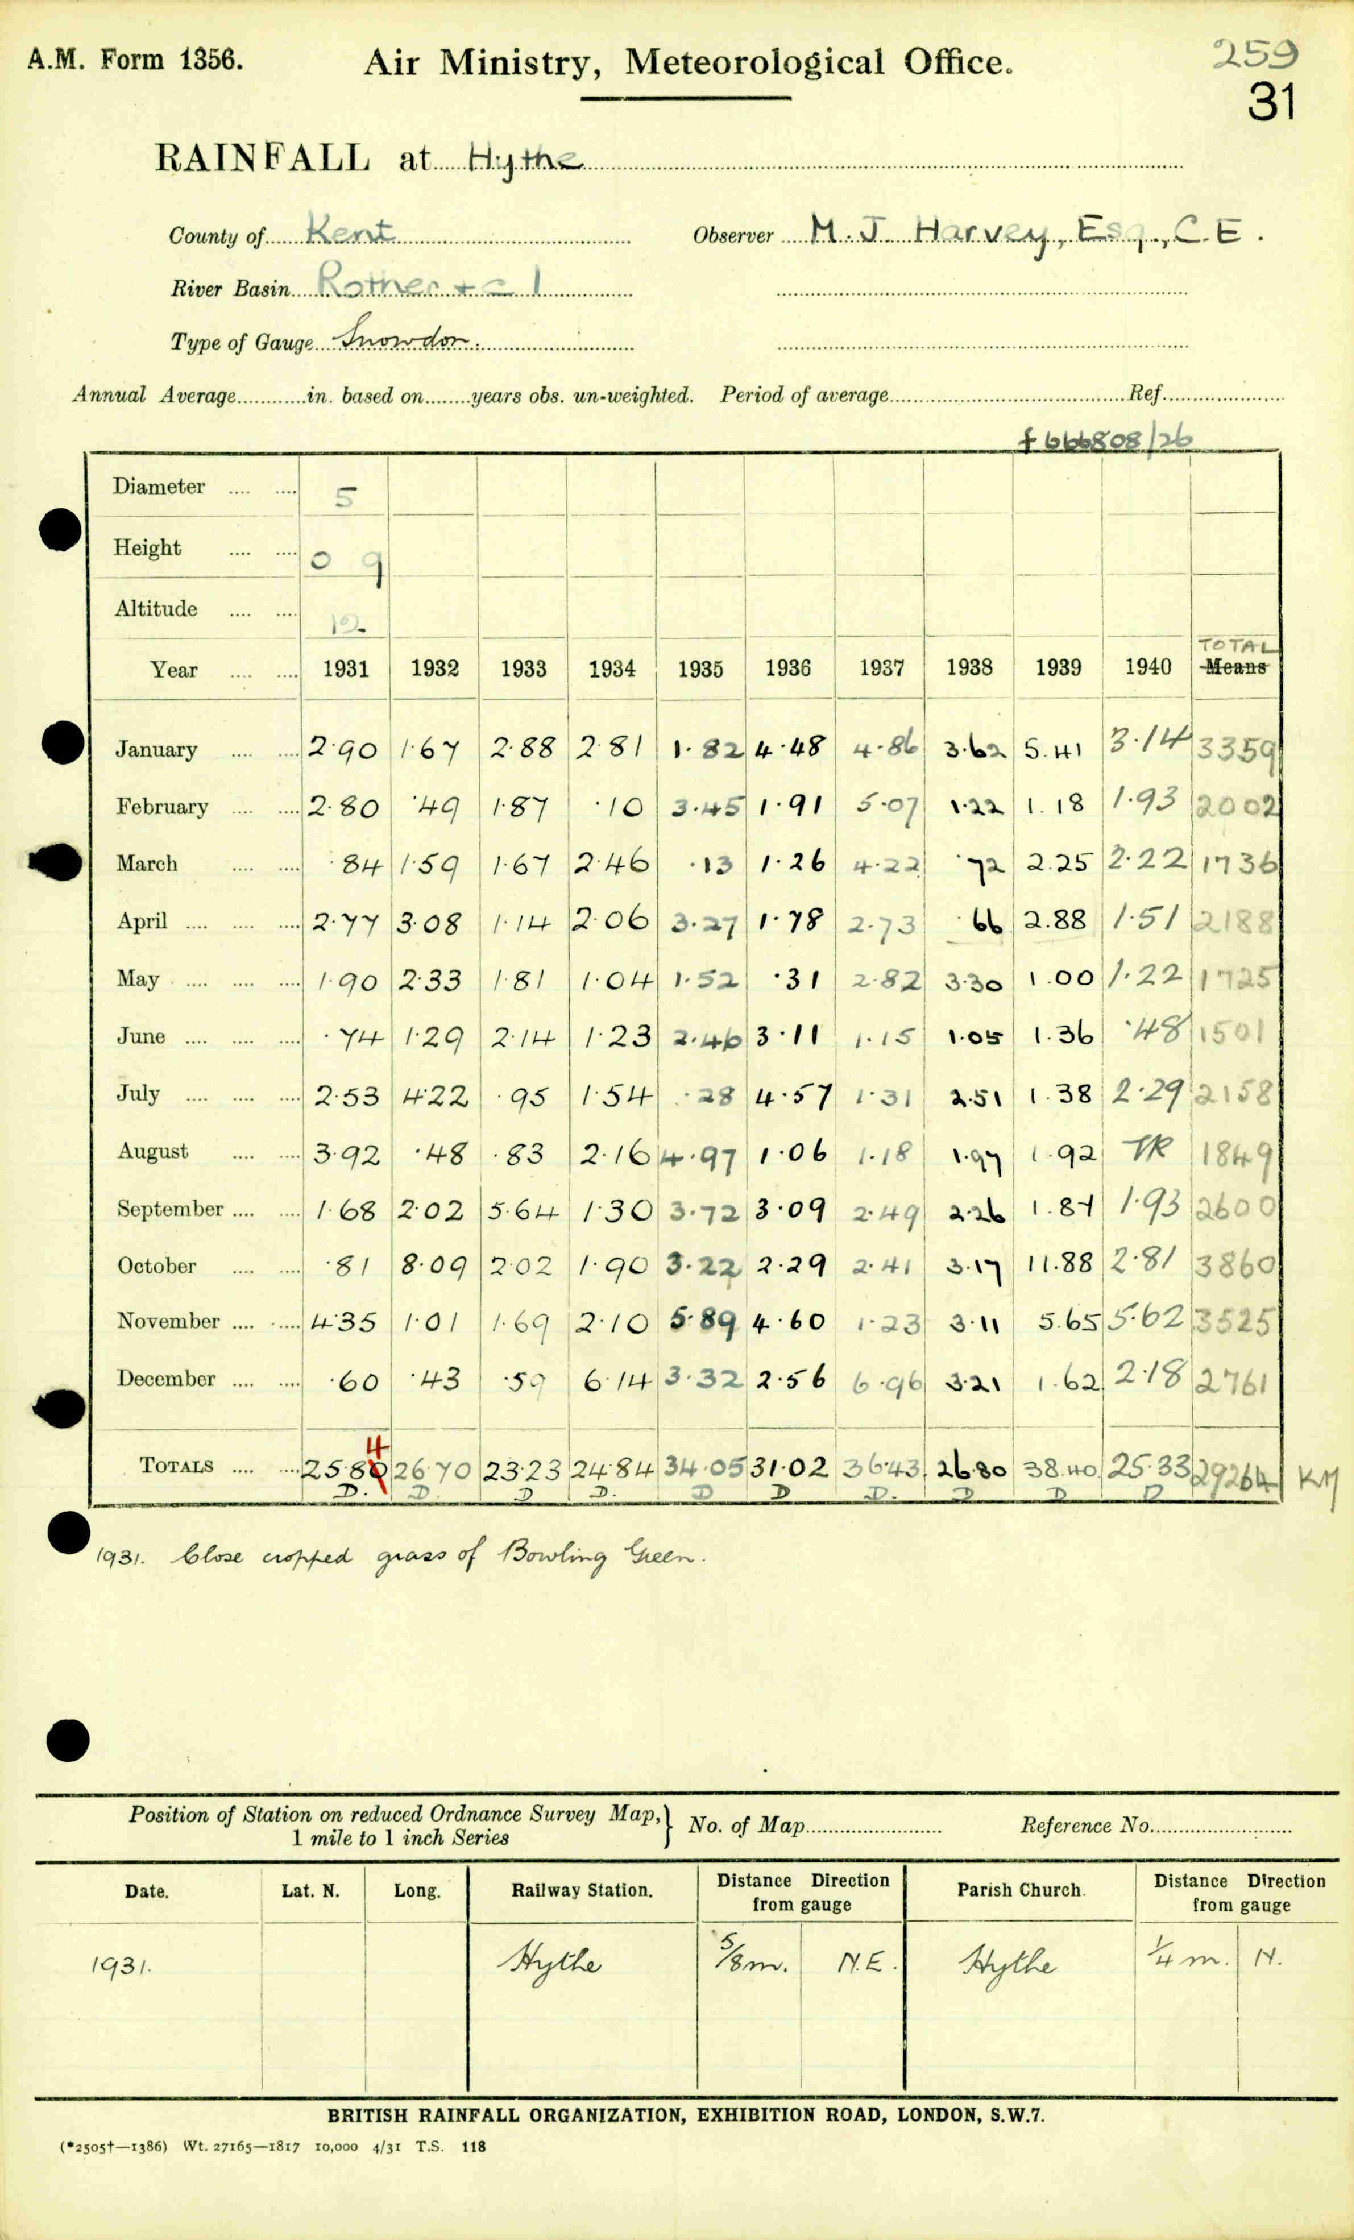 A.M. Form 1356. Air Ministry, Meteorological Office. 259
31
RAINFALL at Hythe
County of Kent Observer M. J Harvey, Esq., C.E.
River Basin Rother + c 1
Type of Gauge Snowdon.
Annual Average in. based on years obs. un-weighted. Period of average Ref.
f 666808/26
Diameter 5
Height 0 9
Altitude 12
TOTAL
Year 1931 1932 1933 1934 1935 1936 1937 1938 1939 1940 Means
January 2.90 1.67 2.88 2.81 1.82 4.48 4.86 3.62 5.41 3.14 3359
February 2.80 .49 1.87 .10 3.45 1.91 5.07 1.22 1.18 1.93 2002
March .84 1.59 1.67 2.46 .13 1.26 4.22 .72 2.25 2.22 1736
April 2.77 3.08 1.14 2.06 3.27 1.78 2.73 .66 2.88 1.51 2188
May 1.90 2.33 1.81 1.04 1.52 .31 2.82 3.30 1.00 1.22 1725
June .74 1.29 2.14 1.23 2.46 3.11 1.15 1.05 1.36 .48 1501
July 2.53 4.22 .95 1.54 .28 4.57 1.31 2.51 1.38 2.29 2158
August 3.92 .48 .83 2.16 4.97 1.06 1.18 1.97 1.92 TR 1849
September 1.68 2.02 5.64 1.30 3.72 3.09 2.49 2.26 1.87 1.93 2600
October .81 8.09 2.02 1.90 3.22 2.29 2.41 3.17 11.88 2.81 3860
November 4.35 1.01 1.69 2.10 5.89 4.60 1.23 3.11 5.65 5.62 3525
December .60 .43 .59 6.14 3.32 2.56 6.96 3.21 1.62 2.18 2761
4
TOTALS 25.80 26.70 23.23 24.84 34.05 31.02 36.43 26.80 38.40 25.33 29264 KM
D. D. D D. D D D. D D D
1931. Close cropped grass of Bowling Green.
Position of Station on reduced Ordnance Survey Map, } No. of Map Reference No.
1 mile to 1 inch Series
Date. Lat. N. Long. Railway Station. Distance Direction from gauge Parish Church. Distance Direction from gauge
1931. Hythe 5/8 m. N.E. Hythe 1/4 m. N.
BRITISH RAINFALL ORGANIZATION, EXHIBITION ROAD, LONDON, S.W.7.
(*2505†—1386) Wt. 27165—1817 10,000 4/31 T.S. 118